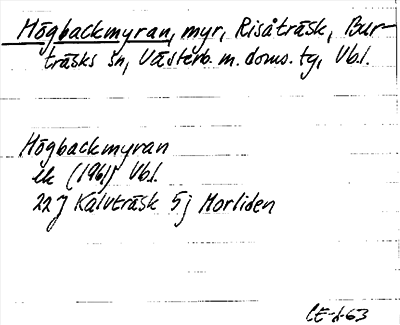 Högbackmyran, myr, Risåträsk, Bur-
träsks sn, Västerb. m. doms. ty, Vbl.
Högbackmyran
ek (1961) Vbl.
22 J Kalvträsk 5 j Morliden
CE-d-63